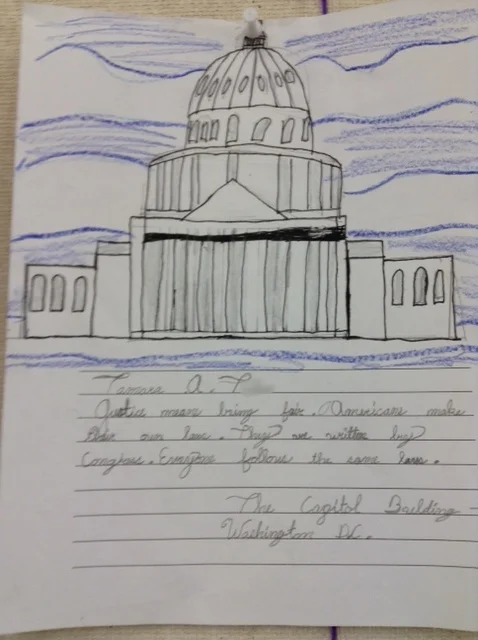 Tamara A. T
Justice means being fair. Americans make
their own laws. They are written by
Congress. Everyone follows the same laws.
The Capitol Building -
Washington DC.